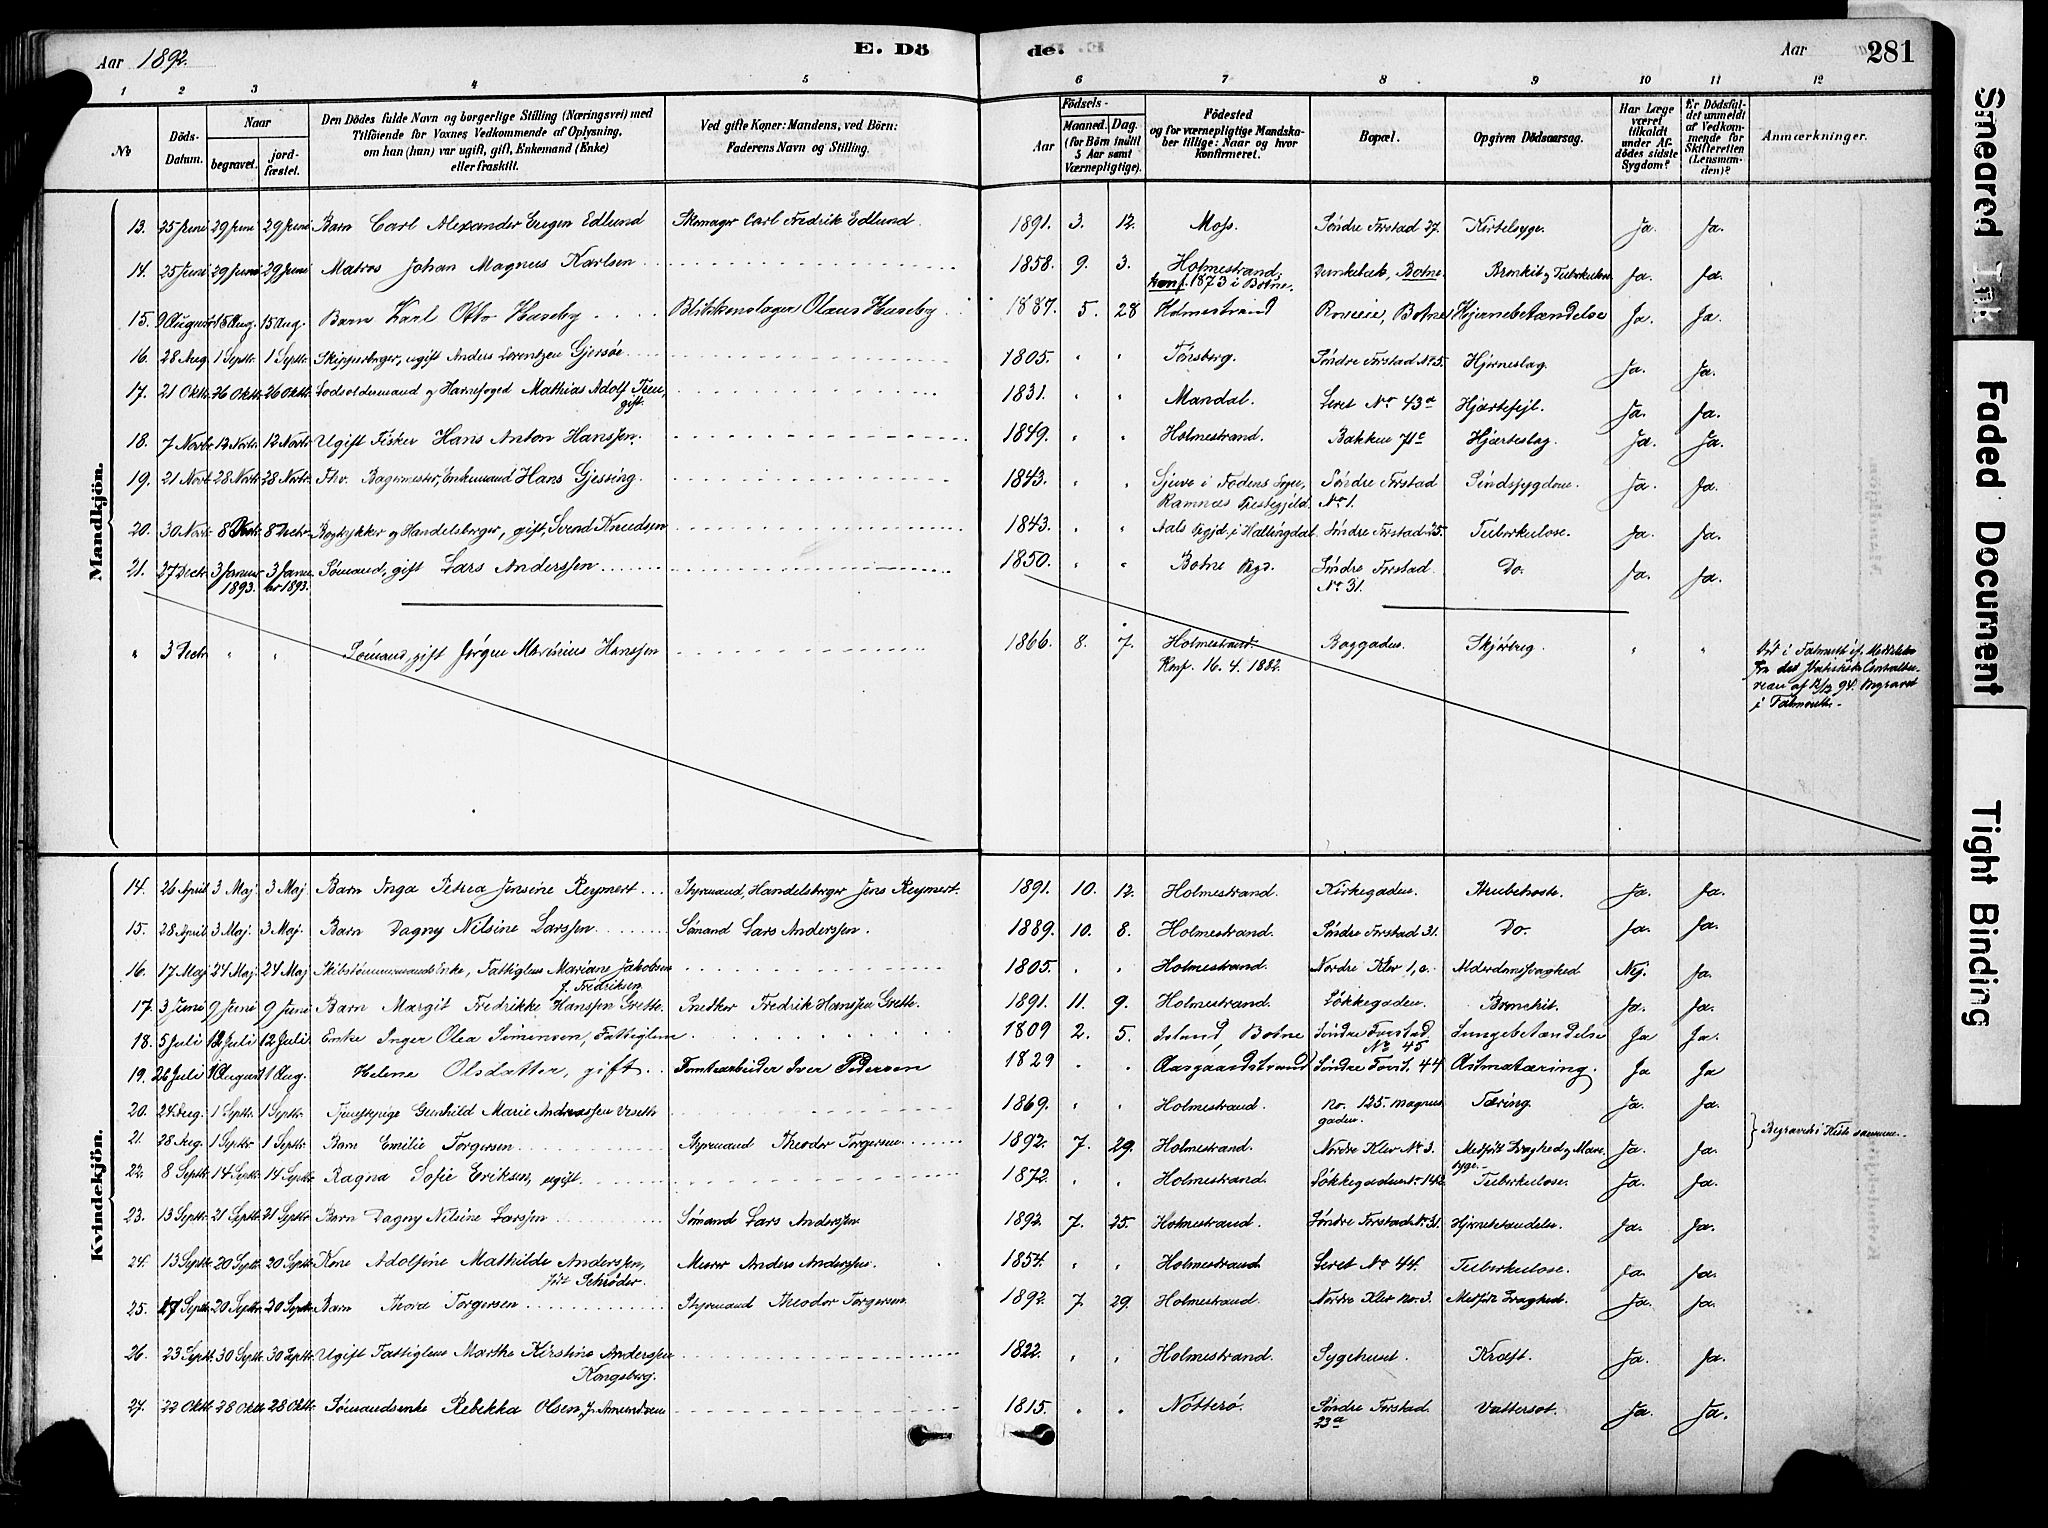 Aar 1892. E. Dö de. Aar 281
1 2 3 4 5 6 7 8 9 10 11 12
№ Döds-Datum. Naar begravet. jord-fæstet. Den Dödes fulde Navn og borgerlige Stilling (Næringsvei) med Tilföiende for Voxnes Vedkommende af Oplysning, om han (hun) var ugift, gift, Enkemand (Enke) eller fraskilt. Ved gifte Koner: Mandens, ved Börn: Faderens Navn og Stilling. Födsels- Aar Maaned. Dag. (for Börn indtil 5 Aar samt Værnepligtige). Födested og for værnepligtige Mandskaber tillige: Naar og hvor konfirmeret. Bopæl. Opgiven Dödsaarsag. Har Læge været tilkaldt under Afdödes sidste Sygdom? Er Dödsfaldet anmeldt af Vedkommende for Skifteretten (Lensmanden)? Anmærkninger.
Mandkjön.
13. 25 Juni 29 Juni 29 Juni Barn Carl Alexander Eugen Edlund Skomager Carl Fredrik Edlund. 1891. 3. 12. Moss. Søndre Forstad 27. Kirtelsyge. Ja. Ja.
14. 25 Juni 29 Juni 29 Juni Matros Johan Magnus Karlsen 1858. 9. 3. Holmestrand; Konf. 1873 i Botne. Botne. Bronkit og Tuberkulose Ja. Ja.
15. 9 August 15 Aug. 15 Aug. Barn Karl Otto Huseby Blikkenslager Olaus Huseby 1887. 5. 28 Holmestrand Botne Hjernebetændelse Ja. Ja.
16. 28 Aug. 1 Septr. 1 Septr. Skipperborger, ugift Anders Lorentzen Gjersøe 1805. " " Tønsberg. Søndre Forstad No 5. Hjerneslag. Ja. Ja.
17. 21 Oktr. 26 Oktr. 26 Oktr. Lodsoldermand og Havnefoged Mathias Adolf gift. 1831. " " Mandal. Leret No 43a Hjertefejl. Ja. Ja.
18. 7 Novbr. 12 Novbr. 12 Novbr. Ugift Fisker Hans Anton Hanssen. 1849. " " Holmestrand. Bakken 71c Hjærteslag. Ja. Ja.
19. 21 Novbr. 28 Novbr. 28 Novbr. Fhv. Bagermester, Enkemand Hans Gjessing. 1843. " " Ramnæs Præstegjeld. Søndre Forstad No 1. Sindssygdom. Ja. Ja.
20. 30 Novbr. 8 Decbr. 8 Decbr. Bogtrykker og Handelsborger, gift, Svend Knudsen 1843. " " Aals Pgjd. i Hallingdal. Søndre Forstad 25. Tuberkulose. Ja. Ja.
21. 27 Decbr. 3 Januar 1893. 3 Januar 1893. Sømand, gift Lars Anderssen 1850. " " Botne Pgd. Søndre Forstad No 31. Do. Ja. Ja.
" 3 Decbr. " " Sømand, gift Jørgen Marinius Hanssen 1866. 8. 7. Holmestrand. Konf. 16. 4. 1882. Baggaden. Skjørbug. " " Død i Falmouth if. Meddelelse fra det statistiske Centralbureau af 94. Begravet i Falmouth.
Kvindekjön.
14. 26 April 3 Maj. 3 Maj Barn Inga Petrea Jensine Reymert Styrmand, Handelsborger Jens Reymert. 1891. 10. 12. Holmestrand. Kirkegaden. Strubehoste. Ja. Ja.
15. 28 April 3 Maj. 3 Maj. Barn Dagny Nilsine Larssen. Sømand Lars Anderssen. 1889. 10. 8. Holmestrand. Søndre Forstad 31. Do. Ja. Ja.
16. 17 Maj 24 Maj. 24 Maj Skibstømmermands Enke, Fattiglem Mariane Jakobsen f. Fredriksen 1805. " " Holmestrand. Nordre Klev 1,a. Alderdomssvaghed Nej. Ja.
17. 3 Juni 9 Juni 9 Juni Barn Margit Fredrikke Hanssen Gretle Snedker Fredrik Hanssen Gretle. 1891. 11. 9. Holmestrand. Løkkegaden. Bronchit. Ja. Ja.
18. 5 Juli 12 Juli 12 Juli Enke Inger Olea Simensen, Fattiglem 1809 2. 5. Botne Søndre Forstad. No 45 Lungebetændelse Ja Ja.
19. 26 Juli 1 August 1 Aug. Helene Olsdatter, gift. Tomtearbeider Iver Pedersen 1829 " " Aasgaardstrand Søndre Forst. 44 Astmatæring. Ja Ja
20. 24 Aug. 1 Septr. 1 Septr. Tjenestepige Gunhild Marie Andreassen 1869. " " Holmestrand. No. 125. Magnus gaden. Tæring. Ja. Ja.
21. 28 Aug. 1 Septr. 1 Septr. Barn Emilie Torgersen. Styrmand Theodor Torgersen 1892. 7. 29. Holmestrand. Nordre Klev No 3. Medfødt Svaghed og Ja. Ja. Begravede i Kiste sammen.
22. 8 Septr. 14 Septr. 14 Septr. Ragna Sofie Eriksen, ugift. 1872. " " Holmestrand. Løkkegaden No 142 Tuberkulose. Ja. Ja.
23. 13 Septr. 21 Septr. 21 Septr. Barn Dagny Nilsine Larssen Sømand Lars Anderssen 1892. 7. 25. Holmestrand. Søndre Forstad No 31. Hjernebetændelse. Ja. Ja.
24. 13 Septr. 20 Septr. 20 Septr. Kone Adolfine Mathilde Anderssen, født Schrøder. Murer Anders Anderssen. 1854. " " Holmestrand Leret No 44. Tuberkulose. Ja. Ja.
25. 17 Septr. 20 Septr. 20 Septr. Barn Thora Torgersen Styrmand Theodor Torgersen 1892. 7. 29. Holmestrand. Nordre Klev No. 3. Medfødt Svaghed. Ja. Ja.
26. 23 Septr. 30 Septr. 30 Septr. Ugift Fattiglem Marthe Kirstine Anderssen Kongsberg. 1822. " " Holmestrand. Sygehuset. Kræft. Ja. Ja.
27. 22 Oktr. 28 Oktr. 28 Oktr. Sømandsenke Rebekka Olsen, f. Amundsen 1815. " " Nøtterø. Søndre Forstad. 23a Vattersot. Ja. Ja.
Smeared Ink
Faded Document
Tight Binding